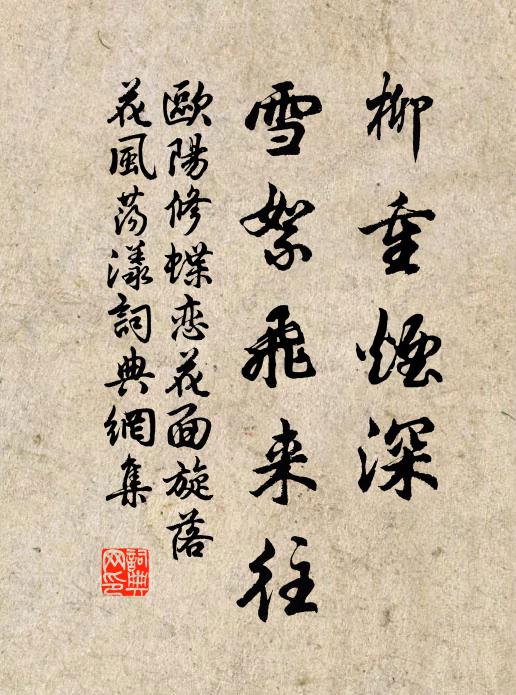 柳重煙深
雪絮飛来往
歐陽修蝶恋花面旋落
花風蕩漾詞典網集
詞典
网印